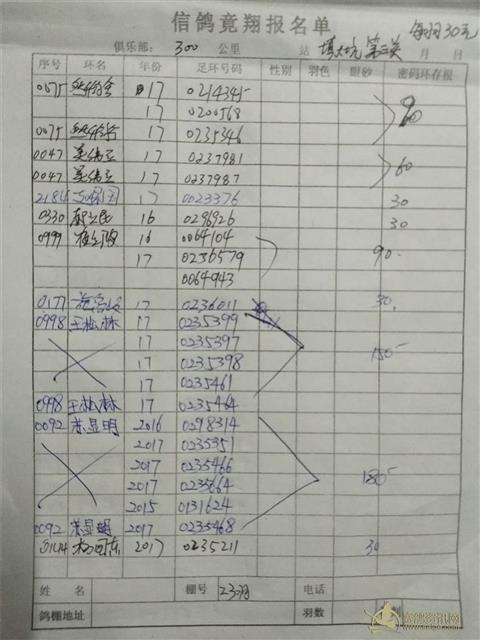 信鸽竟翔报名单 每羽30元
俱乐部： 300 公里 站 填大坑 第二关 月 日
序号 环名 年份 足环号码 性别 羽色 眼砂 密码环存根
0075 17 0214345
17 0200568 90
0075 17 0235346
0047 17 0237981 60
0047 17 0237987
2184 17 0023376 30
0330 16 0296926 30
0999 16 0064104
17 0236579 90
0064943
0177 17 0236011 30
0998 王松林 17 0235399
17 0235397
17 0235398 150
17 0235461
0998 王松林 17 0235464
0092 苏显明 2016 0298314
2017 0235351
2017 0235466
2017 0235664 180
2015 0131624
0092 苏显明 2017 0235468
2017 0235211 30
姓 名 棚号 23羽 电话
鸽棚地址 羽数